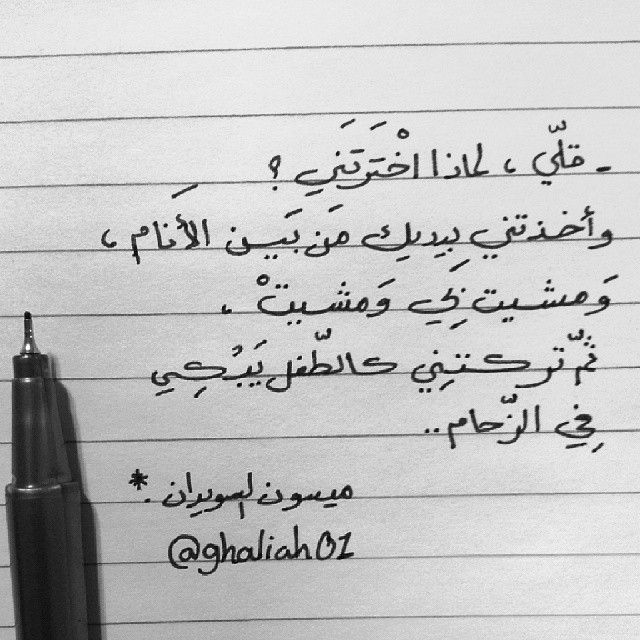 - قلّي ، لماذا اخْتَرَتَني ؟
وأخذتني بِيديك مَن بَين الأنَام ،
وَمشيت بَي وَمشيتْ ،
ثمّ تركتنِي كالطّفل يَبُكِي
فِي الزّحام ..
ميسون السويدان . *
@ghaliah01